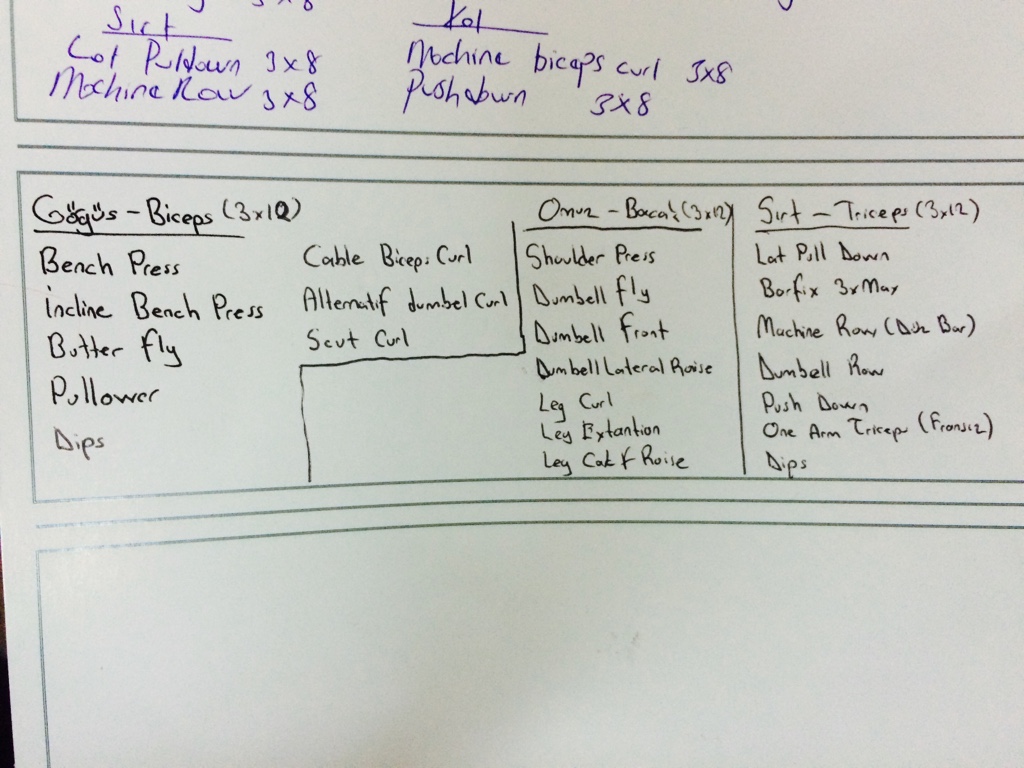 3x8
Sırt
Lat Pulldown 3x8
Machine Row 3x8
Kol
Machine biceps curl 3x8
Pushdown 3x8
Göğüs - Biceps (3x10)
Bench Press
incline Bench Press
Butter fly
Pullower
Dips
Cable Biceps Curl
Alternatif dumbel Curl
Scut Curl
Omuz - Bacak (3x12)
Shoulder Press
Dumbell fly
Dumbell front
Dumbell Lateral Raise
Leg Curl
Leg Extantion
Leg Calf Raise
Sırt - Triceps (3x12)
Lat Pull Down
Barfix 3xMax
Machine Row (Düz Bar)
Dumbell Row
Push Down
One Arm Triceps (Fransız)
Dips